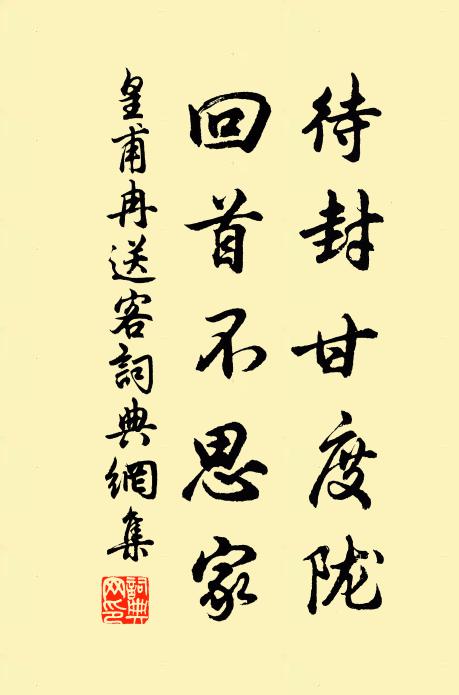 待封甘度陇
回首不思家
皇甫冉送客詞典網集
詞典網印